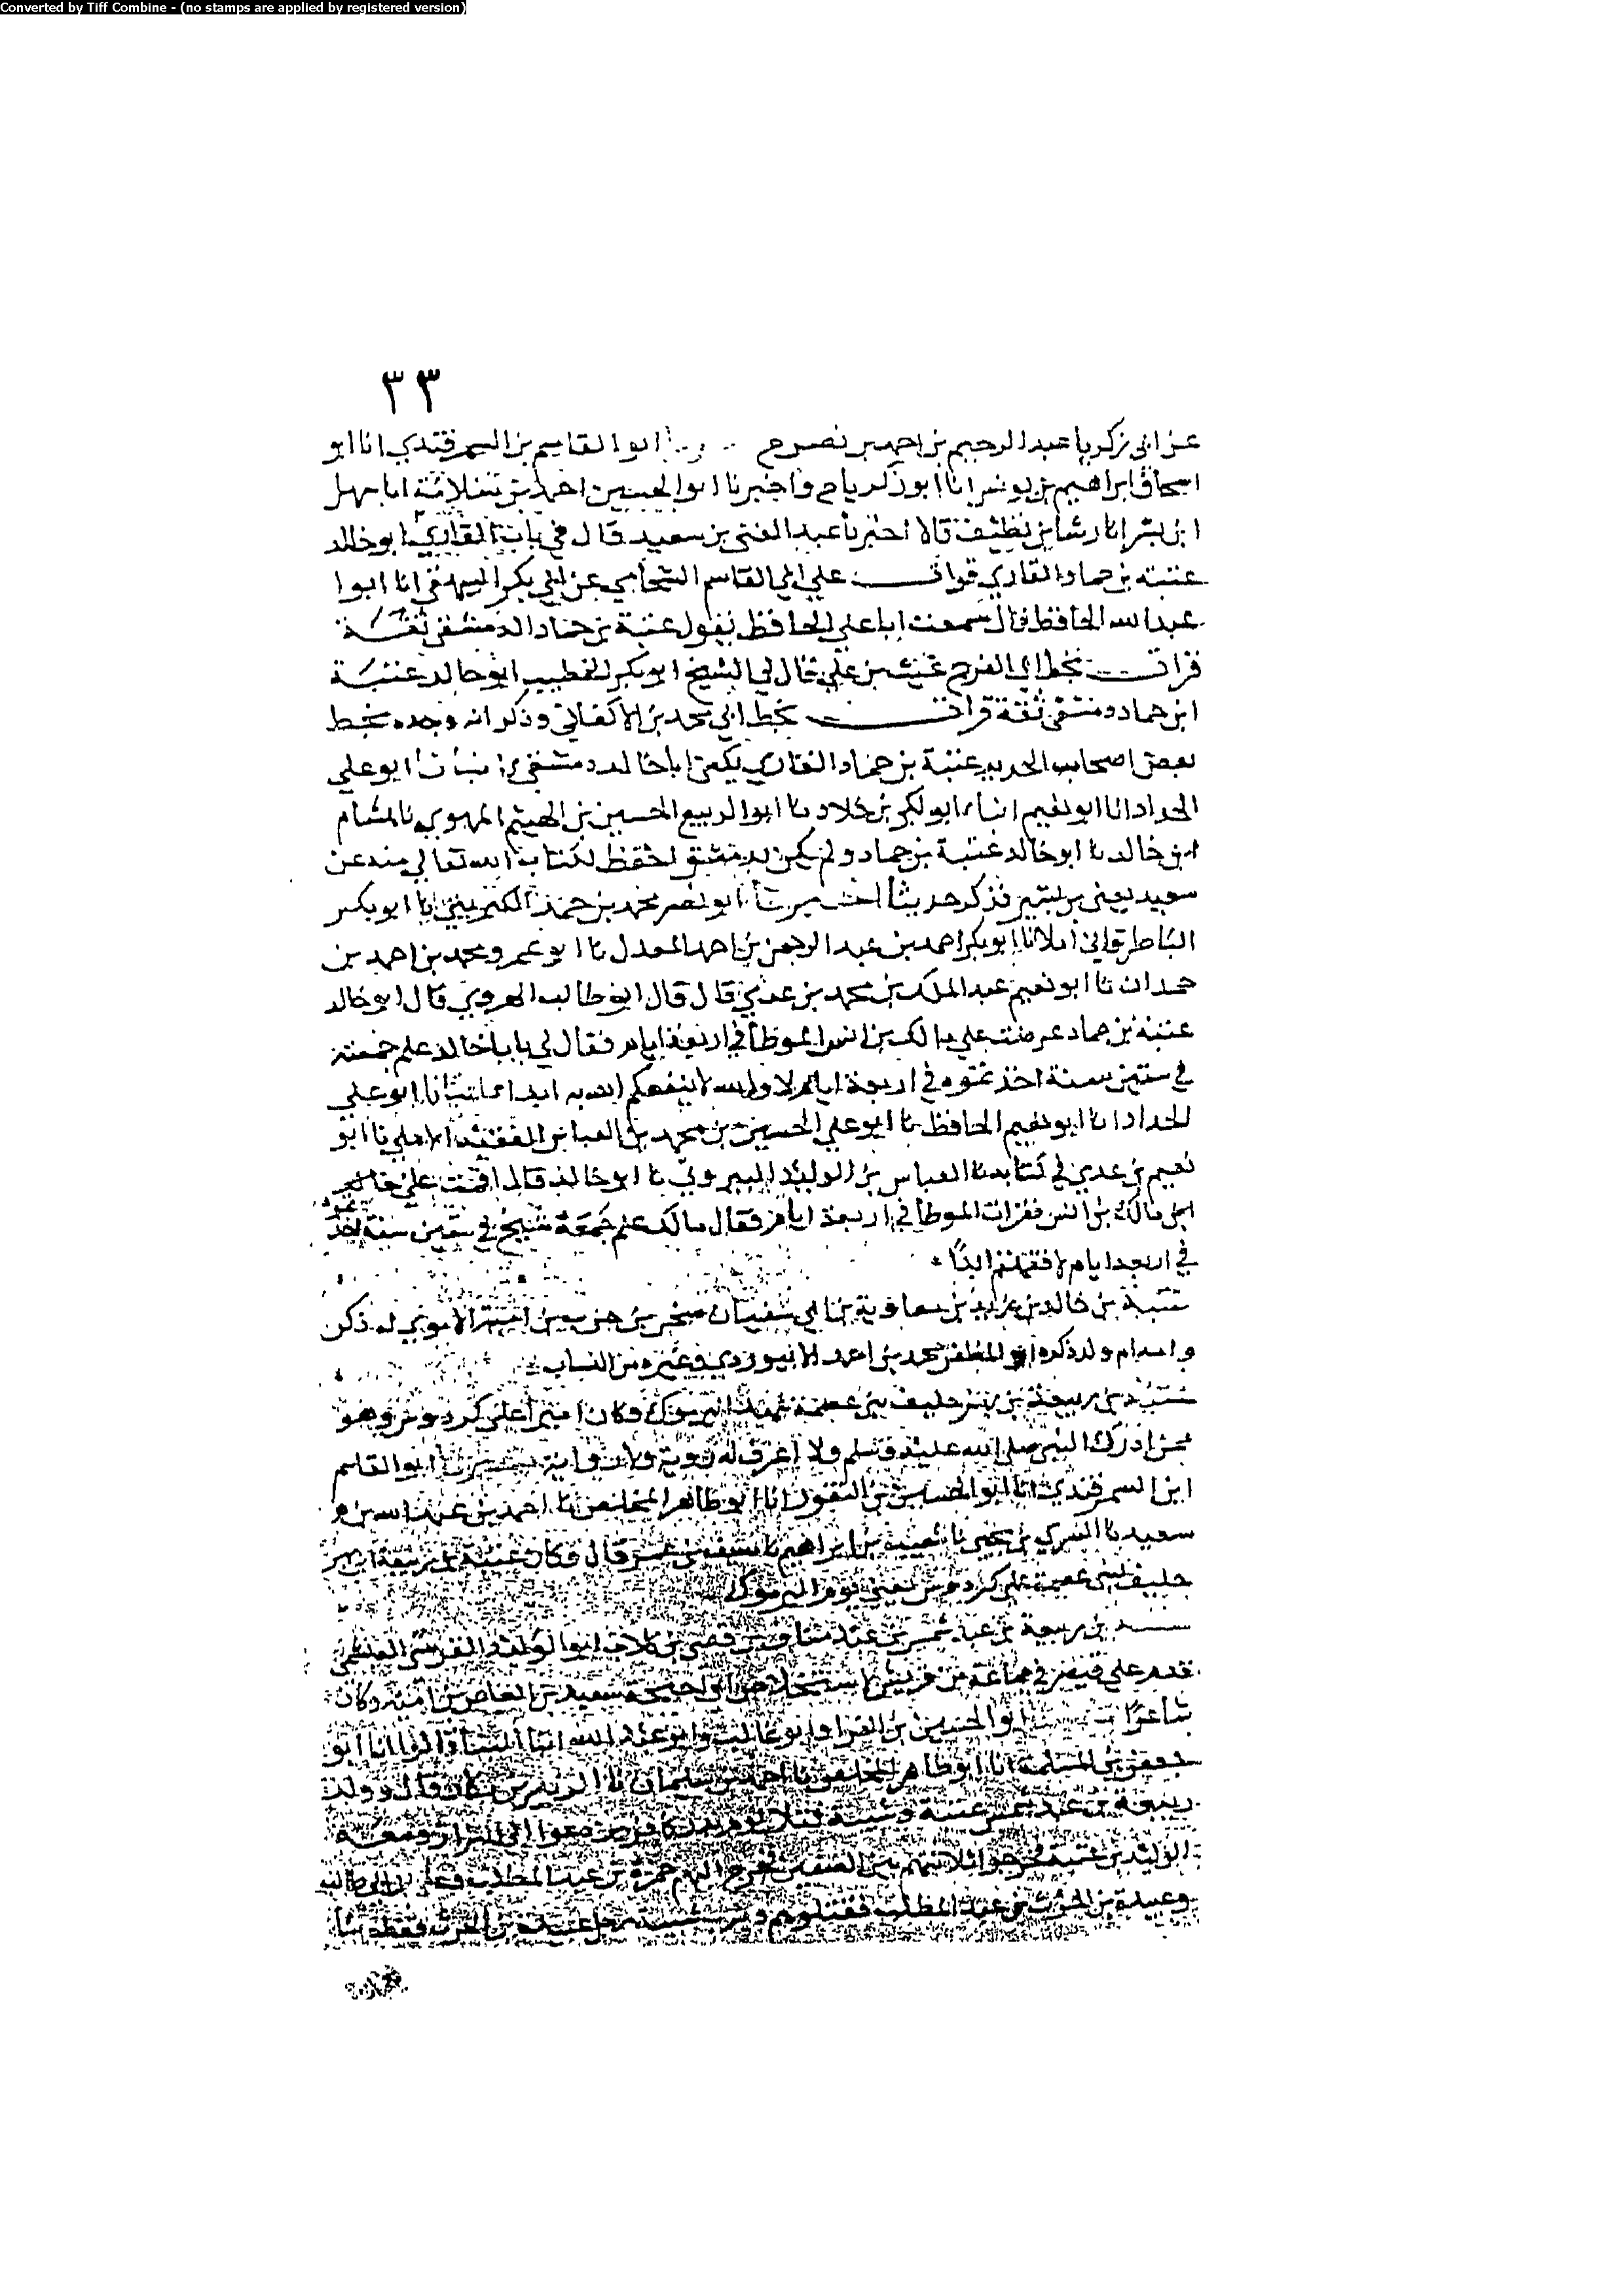 Converted by Tiff Combine - (no stamps are applied by registered version)
٣٣
عن ابي زكريا عبد الرحيم بن احمد بن نصر ح ابو القاسم بن السمرقندي انا ابو
اسحاق ابراهيم بن يونس انا ابو زكريا ح واخبرنا ابو الحسين احمد بن سلامة انا سهل
ابن بشر انا رشا بن نظيف قالا اخبرنا عبد الغني بن سعيد قال في باب القاري ابو خالد
عتبة بن حماد القاري قرات علي ابي القاسم الشحامي عن ابي بكر البيهقي انا ابوا
عبد الله الحافظ قال سمعت ابا علي الحافظ يقول عتبة بن حماد الدمشقي ثقة
قرات بخط ابي الفرج غيث بن علي قال لي الشيخ ابو بكر الخطيب ابو خالد عتبة
ابن حماد دمشقي ثقة قرات بخط ابي محمد بن الاكفاني وذكر انه وجده بخط
بعض اصحاب الحديث عتبة بن حماد القاري يكنى ابا خالد دمشقي انبأنا ابو علي
الحداد انا ابو نعيم انبا ابو بكر بن خلاد نا ابو الربيع الحسين بن الهيثم المهروي نا هشام
ابن خالد نا ابو خالد عتبة بن حماد ولم يكن بدمشق احفظ لكتاب الله تعالي منه عن
سعيد يعني بن بشير فذكر حديثا اخبرنا ابو نصر محمد بن حمد الكبريتي انا ابو بكر
الباطرقاني املا نا ابو بكر احمد بن عبد الرحمن بن احمد المعدل نا ابو عمرو محمد بن احمد بن
حمدان نا ابو نعيم عبد الملك بن محمد بن عدي قال قال ابو طالب الهروي قال ابو خالد
عتبة بن حماد عرضت علي مالك بن انس الموطأ في اربعة ايام فقال لي يا ابا خالد علم جمعته
في ستين سنة اخذتموه في اربعة ايام لا والله لا ينفعكم الله به ابدا انبأنا ابو علي
الحداد انا ابو نعيم الحافظ نا ابو علي الحسين بن محمد بن العباس الفقيه الاملي نا ابو
نعيم بن عدي في كتابه نا العباس بن الوليد البيروتي نا ابو خالد قال اقمت علي
بن مالك بن انس فقرات الموطأ في اربعة ايام فقال مالك علم جمعه شيخ في ستين سنة اخذتموه
في اربعة ايام لا فقهتم ابدا
عتبة بن خالد بن يزيد بن معاوية بن ابي سفيان صخر بن حرب بن امية الاموي له ذكر
وامه ام ولد ذكره ابو المظفر محمد بن احمد الابيوردي وغيره من النساب
عتبة بن ربيعة بن بهز حليف بني عصمة شهد اليرموك وكان اميرا علي كردوس وهو
ممن ادرك النبي صلي الله عليه وسلم ولا اعرف له رؤية ولا رواية اخبرنا ابو القاسم
ابن السمرقندي انا ابو الحسين بن النقور انا ابو طاهر المخلص نا احمد بن عبد الله بن
سعيد نا السري بن يحيى نا شعيب بن ابراهيم نا سيف بن عمر قال وكان عتبة بن ربيعة بن بهز
حليف لبني عصمة علي كردوس يعني يوم اليرموك
بن ربيعة بن عبد شمس بن عبد مناف بن قصي بن كلاب ابو الوليد القرشي العبشمي
قدم علي قيصر في جماعة من قريش ابي احيحة سعيد بن العاص بن امية وكان
شاعرا ابو الحسين بن الفرا وابو غالب وابو عبد الله ابنا البنا قالوا انا ابو
جعفر بن المسلمة انا ابو طاهر المخلص نا احمد بن سليمان نا الزبير بن بكار قال وولد
ربيعة بن عبد شمس عتبة وشيبة قتلا يوم بدر كافرين دعوا الي البراز ومعه
الوليد بن عتبة فخرجوا ثلاثتهم بين الصفين فخرج اليهم حمزة بن عبد المطلب وعلي بن ابي طالب
وعبيدة بن الحرث بن عبد المطلب فقتلوهم شيبة رجل عبيدة بن الحرث